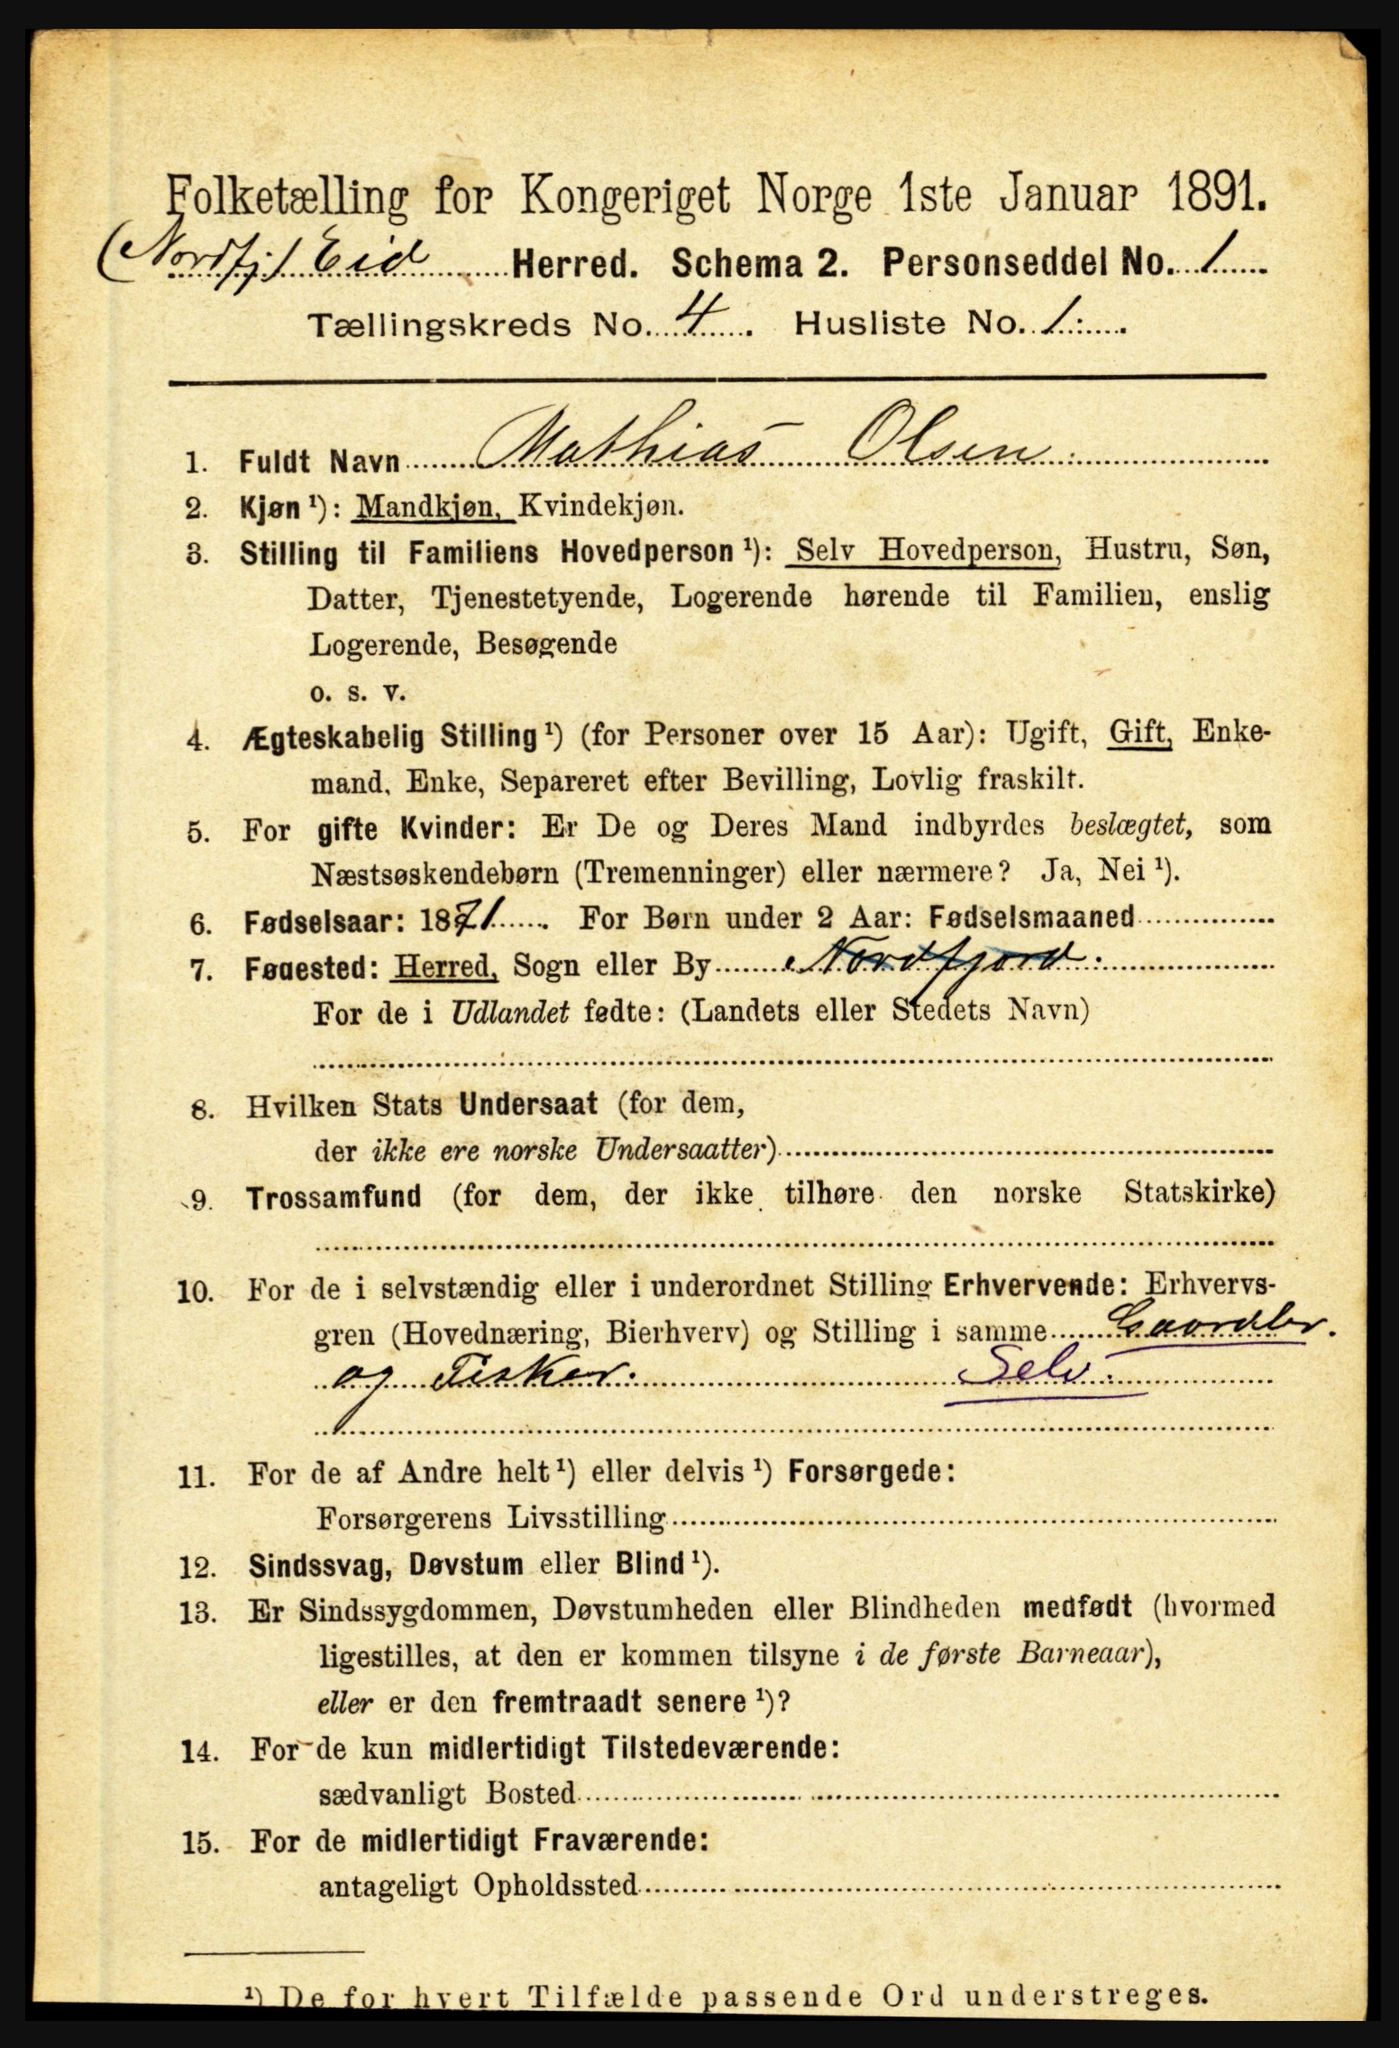 Folketælling for Kongeriget Norge 1ste Januar 1891.
(Nordfj.) Eid Herred. Schema 2. Personseddel No. 1
Tællingskreds No. 4. Husliste No. 1.
1. Fuldt Navn Mathias Olsen
2. Kjøn ¹): Mandkjøn, Kvindekjøn.
3. Stilling til Familiens Hovedperson ¹): Selv Hovedperson, Hustru, Søn,
Datter, Tjenestetyende, Logerende hørende til Familien, enslig
Logerende, Besøgende
o. s. v.
4. Ægteskabelig Stilling ¹) (for Personer over 15 Aar): Ugift, Gift, Enke-
mand, Enke, Separeret efter Bevilling, Lovlig fraskilt.
5. For gifte Kvinder: Er De og Deres Mand indbyrdes beslægtet, som
Næstsøskendebørn (Tremenninger) eller nærmere? Ja, Nei ¹).
6. Fødselsaar: 1871. For Børn under 2 Aar: Fødselsmaaned
7. Fødested: Herred, Sogn eller By Nordfjord.
For de i Udlandet fødte: (Landets eller Stedets Navn)
8. Hvilken Stats Undersaat (for dem,
der ikke ere norske Undersaatter)
9. Trossamfund (for dem, der ikke tilhøre den norske Statskirke)
10. For de i selvstændig eller i underordnet Stilling Erhvervende: Erhvervs-
gren (Hovednæring, Bierhverv) og Stilling i samme Gaardbr.
og Fisker. Selv.
11. For de af Andre helt ¹) eller delvis ¹) Forsørgede:
Forsørgerens Livsstilling
12. Sindssvag, Døvstum eller Blind ¹).
13. Er Sindssygdommen, Døvstumheden eller Blindheden medfødt (hvormed
ligestilles, at den er kommen tilsyne i de første Barneaar),
eller er den fremtraadt senere ¹)?
14. For de kun midlertidigt Tilstedeværende:
sædvanligt Bosted
15. For de midlertidigt Fraværende:
antageligt Opholdssted
¹) De for hvert Tilfælde passende Ord understreges.